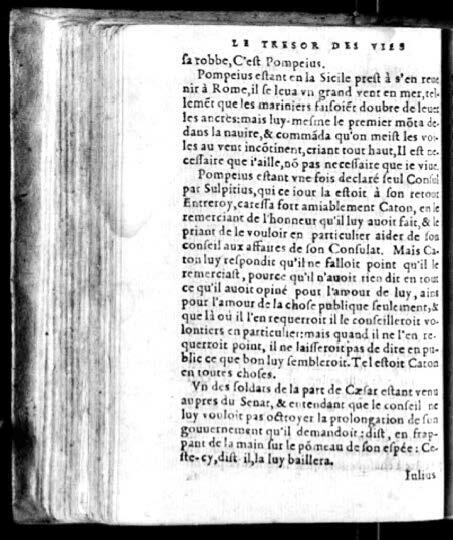 LE TRESOR DES VIES
sa robbe, C'est Pompeius.
Pompeius estant en la Sicile prest à s'en reue
nir à Rome, il se leua vn grand vent en mer, tel-
lemẽt que les mariniers faisoiẽt doubte de leuer
les ancres: mais luy-mesme le premier mõta de-
dans la nauire, & commãda qu'on meist les voi-
les au vent incõtinent, criant tout haut, Il est ne-
cessaire que i'aille, nõ pas necessaire que ie viue.
Pompeius estant vne fois declaré seul Consul
par Sulpitius, qui ce iour la estoit à son retour
Entreroy, caressa fort amiablement Caton, en le
remerciant de l'honneur qu'il luy auoit fait, & le
priant de le vouloir en particulier aider de son
conseil aux affaires de son Consulat. Mais Ca-
ton luy respondit qu'il ne falloit point qu'il le
remerciast, pource qu'il n'auoit rien dit en tout
ce qu'il auoit opiné pour l'amour de luy, ains
pour l'amour de la chose publique seulement, &
que là ou il l'en requerroit il le conseilleroit vo-
lontiers en particulier: mais quand il ne l'en re-
querroit point, il ne laisseroit pas de dire en pu-
blic ce que bon luy sembleroit. Tel estoit Caton
en toutes choses.
Vn des soldars de la part de Cæsar estant venu
aupres du Senat, & entendant que le conseil ne
luy vouloit pas octroyer la prolongation de son
gouuernement qu'il demandoit: dist, en frap-
pant de la main sur le põmeau de son espée: Ce-
ste-cy, dist il, la luy baillera.
Iulius